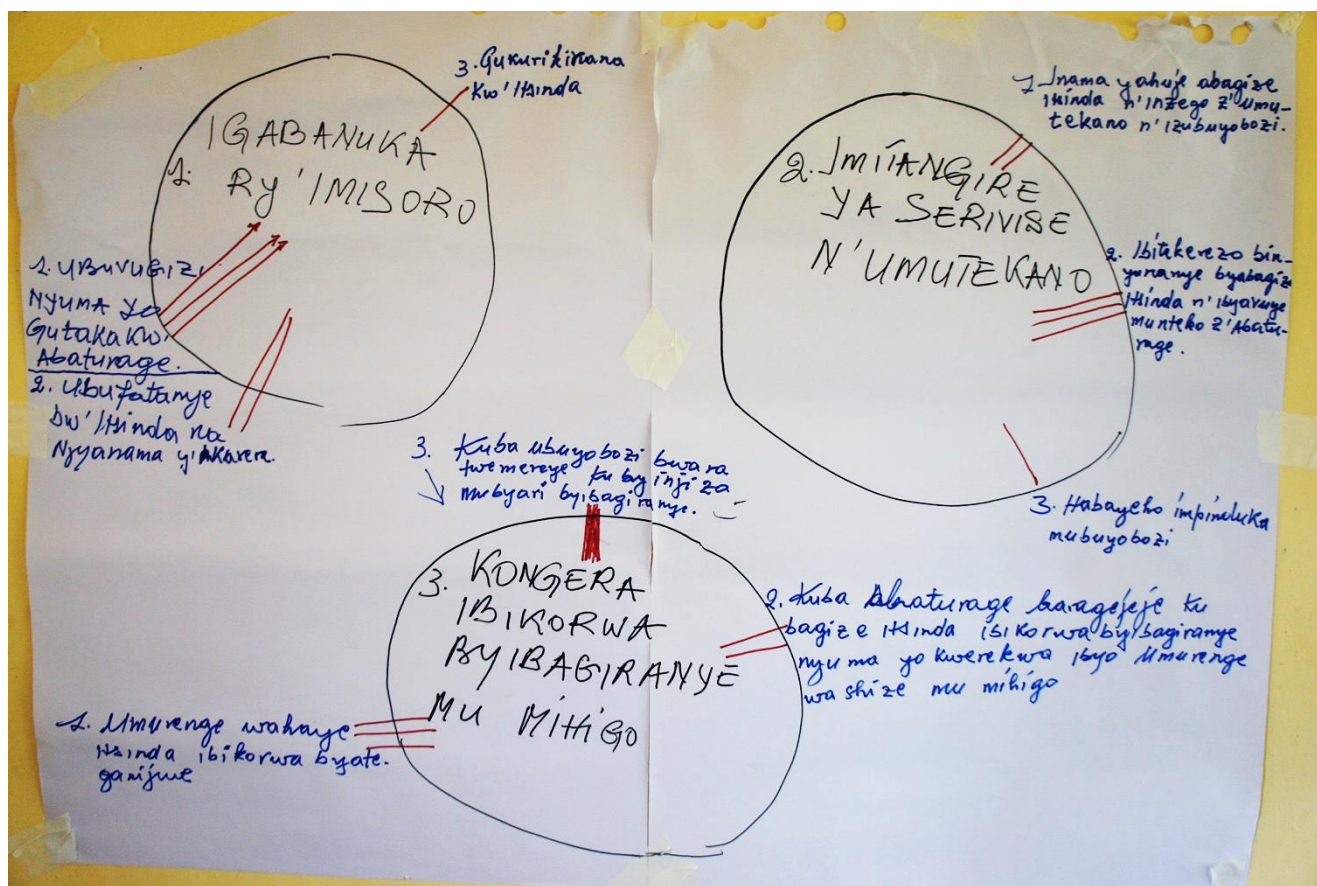 3. Gukurikirana
Kw'Itsinda
1. IGABANUKA
RY'IMISORO
1. UBUVUGIZI
NYUMA yo
Gutaka kw'
Abaturage.
2. Ubufatanye
bw'Itsinda na
Njyanama y'Akarere.
1. Inama yahuje abagize
itsinda n'inzego z'umu-
tekano n'izubuyobozi.
2. IMITANGIRE
YA SERIVISE
N'UMUTEKANO
2. Ibitekerezo bin-
yuranye byabagize
itsinda n'ibyavuye
munteko z'Abatu-
rage.
3. Habayeho impinduka
mubuyobozi
3. Kuba ubuyobozi bwara
twemereye ku byinjiza
mubyari byibagiranye.
3. KONGERA
IBIKORWA
BYIBAGIRANYE
MU MIHIGO
2. Kuba Abaturage baragejeje ku
bagize itsinda ibikorwa byibagiranye
nyuma yo kwerekwa ibyo Umurenge
washize mu mihigo
1. Umurenge wahaye
itsinda ibikorwa byate-
ganijwe